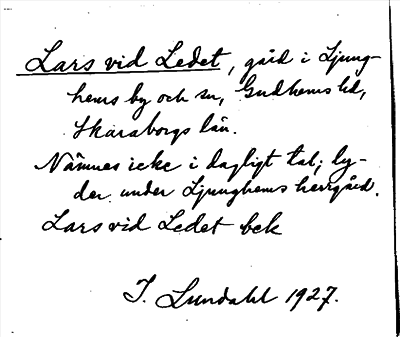 Lars vid Ledet, gård i Ljung-
hems by och sn, Gudhems hd,
Skaraborgs län.
Nämnes icke i dagligt tal; ly-
der under Ljunghems herrgård.
Lars vid Ledet bek
I. Lundahl 1927.